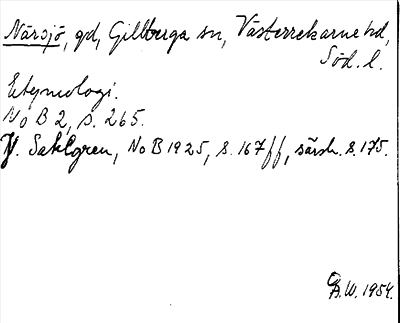 Närsjö, gd, Gillberga sn, Västerrekarne hd,
Söd. l.
Etymologi.
NoB 2, s. 265.
J. Sahlgren, NoB 1925, s. 167 ff, särsk. s. 175.
B.W. 1954.